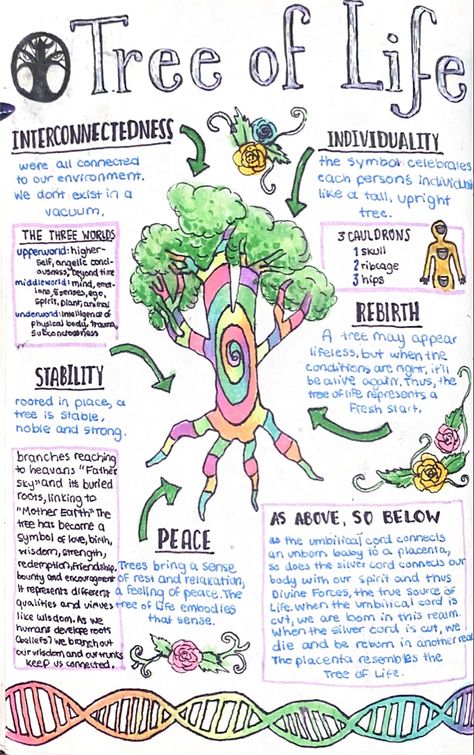 Tree of Life
INTERCONNECTEDNESS
were all connected
to our environment.
We dont exist in a
vacuum.
INDIVIDUALITY
the symbol celebrates
each persons individua
like a tall, upright
tree.
THE THREE WORLDS
upperworld: higher-
self, angelic conci-
ousness, beyond time
middleworld: mind, emot-
ions, 5 senses, ego,
spirit, plant, animal
underworld: intelligence of
physical body, trauma,
subconsciousness
3 CAULDRONS
1 skull
2 ribcage
3 hips
REBIRTH
A tree may appear
lifeless, but when the
conditions are right, it'll
be alive again. Thus, the
tree of life represents a
Fresh start.
STABILITY
rooted in place, a
tree is stable,
noble and strong.
branches reaching
to heavans "Father
sky" and its buried
roots, linking to
"Mother Earth" The
tree has become a
symbol of love, birth,
wisdom, strength,
redemption, friendship,
bounty and encouragement
It represents different
qualities and
like wisdom. As we
humans develope roots
(beliefs) we branch out
our wisdom and our trunks
keep us connected.
PEACE
Trees bring a sense
of rest and relaxation,
a feeling of peace. The
tree of life embodies
that sense.
AS ABOVE, SO BELOW
as the umbilical cord connects
an unborn baby to a placenta,
so does the silver cord connects our
body with our spirit and thus
Divine Forces, the true source of
Life. when the umbilical cord is
cut, we are born in this realm.
when the silver cord is cut, we
die and be reborn in another real
The placenta resembles the
Tree of Life.